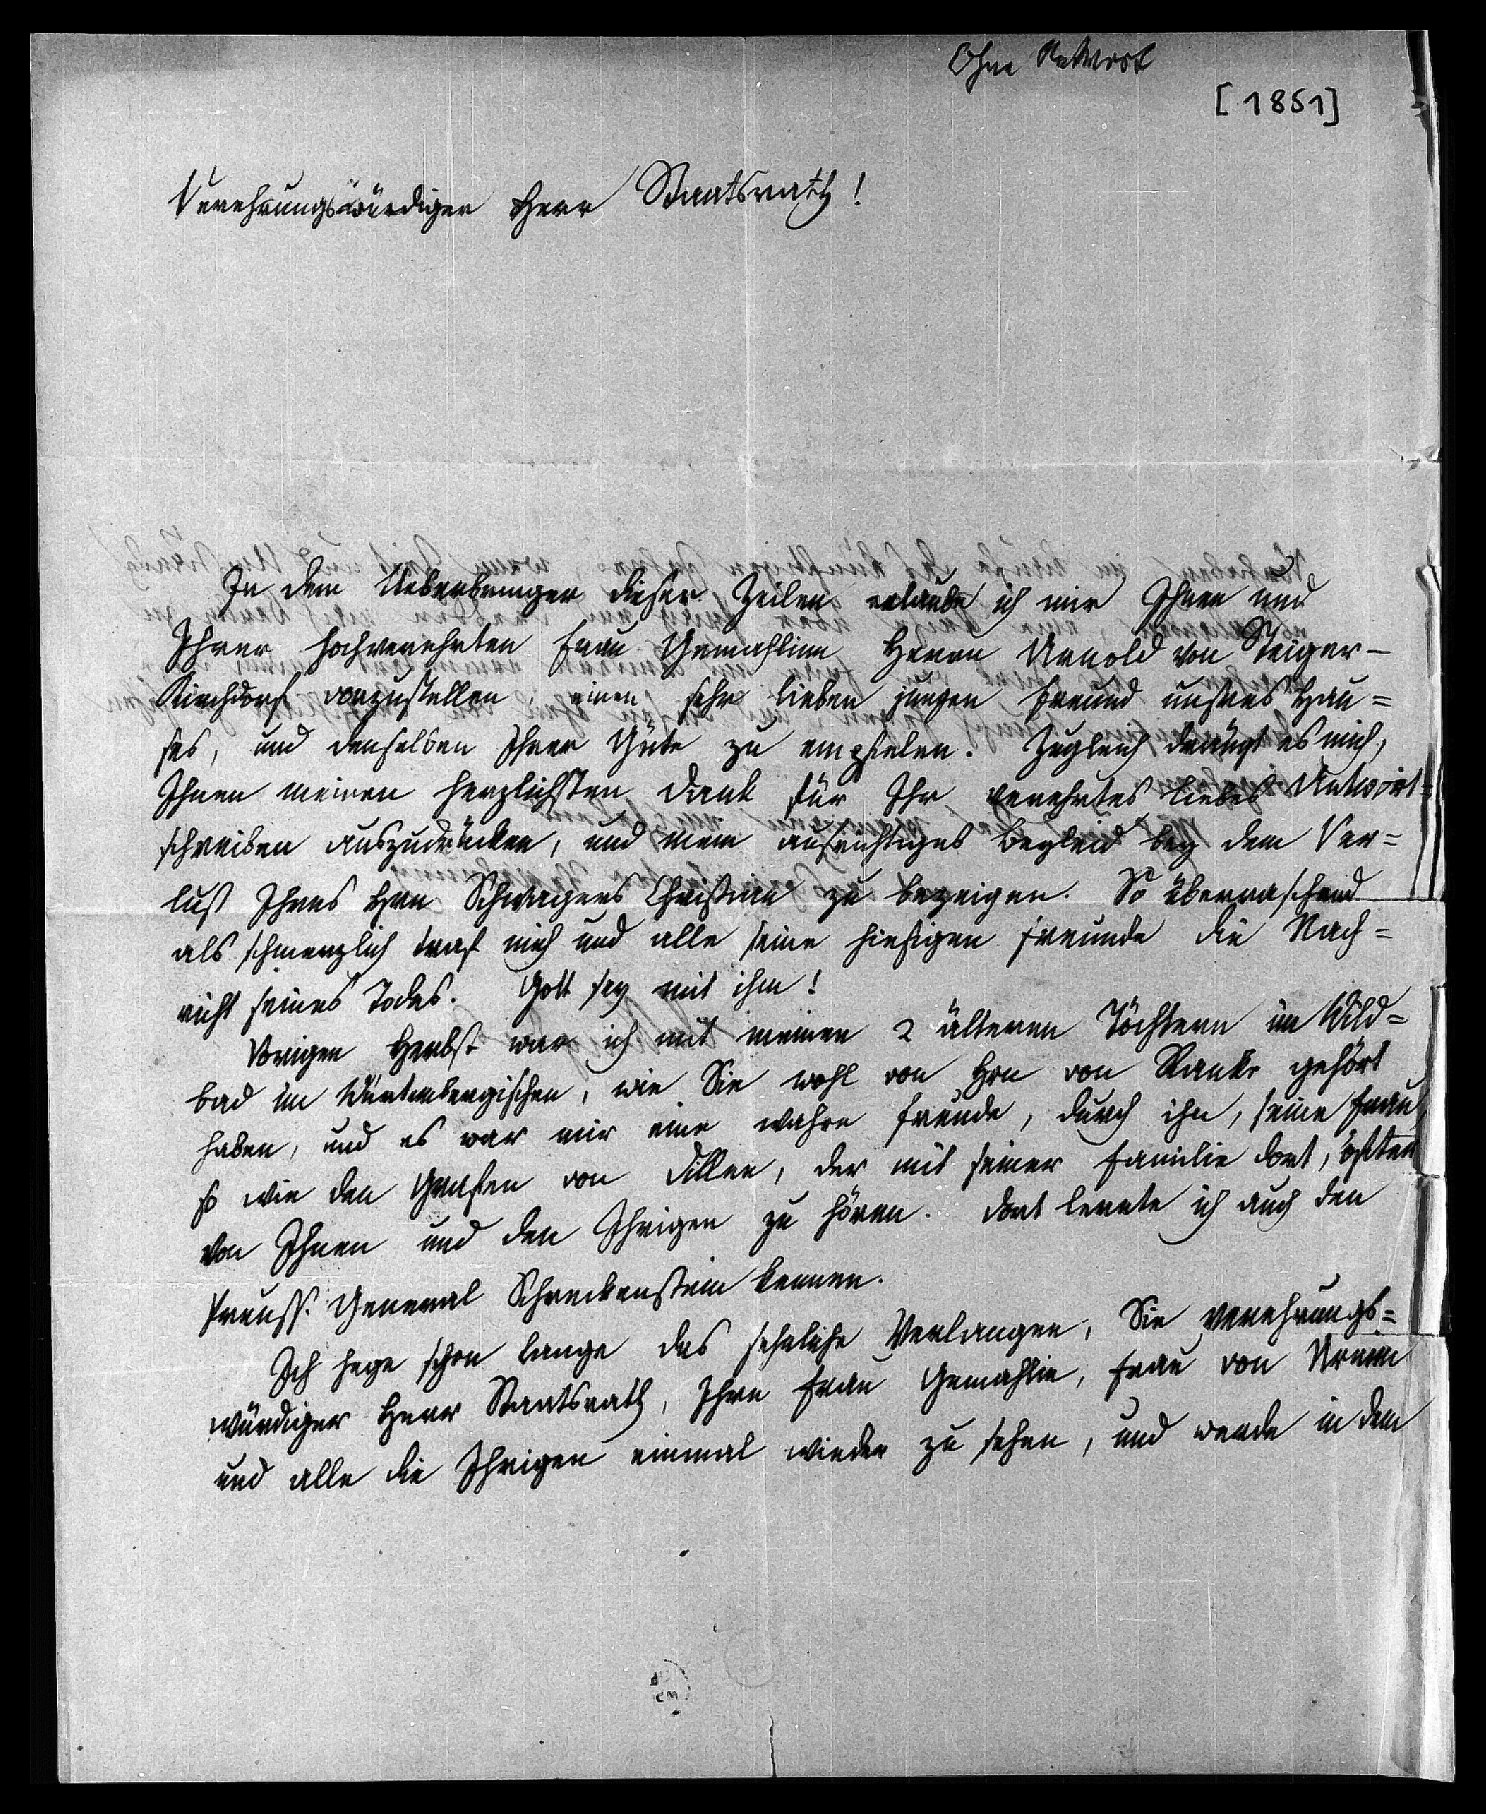 Ohne Antwort
[1851]
Verehrungswürdiger Herr Staatsrath!
In dem Ueberbringer dieser Zeilen erlaube ich mir Ihnen und
Ihrer hochverehrten Frau Gemahlinn Herrn Arnold von Steiger-
Kirchdorf vorzustellen einen sehr lieben jungen Freund unsres Hau=
ses, und denselben Ihrer Güte zu empfelen. Zugleich drängt es mich,
Ihnen meinen herzlichsten Dank für Ihr verehrtes liebes Antwort=
schreiben auszudrücken, und mein aufrichtiges Beyleid bey dem Ver=
lust Ihres Hrn Schwagers Christian zu bezeigen. So überraschend
als schmerzlich traf mich und alle seine hiesigen Freunde die Nach=
richt seines Todes. Gott sey mit ihm!
Vorigen Herbst war ich mit meinen 2 älteren Töchtern im Wild=
bad im Würtembergischen, wie Sie wohl von Hrn von Ranke gehört
haben, und es war mir eine wahre Freude, durch ihn, seine Frau
so wie den Grafen von Dillen, der mit seiner Familie dort, öfters
von Ihnen und den Ihrigen zu hören. Dort lernte ich auch den
Preuss. General Schreckenstein kennen.
Ich hege schon lange das sehnliche Verlangen, Sie verehrungs=
würdiger Herr Staatsrath, Ihre Frau Gemahlin, Frau von Arnim
und alle die Ihrigen einmal wieder zu sehen, und werde in dem